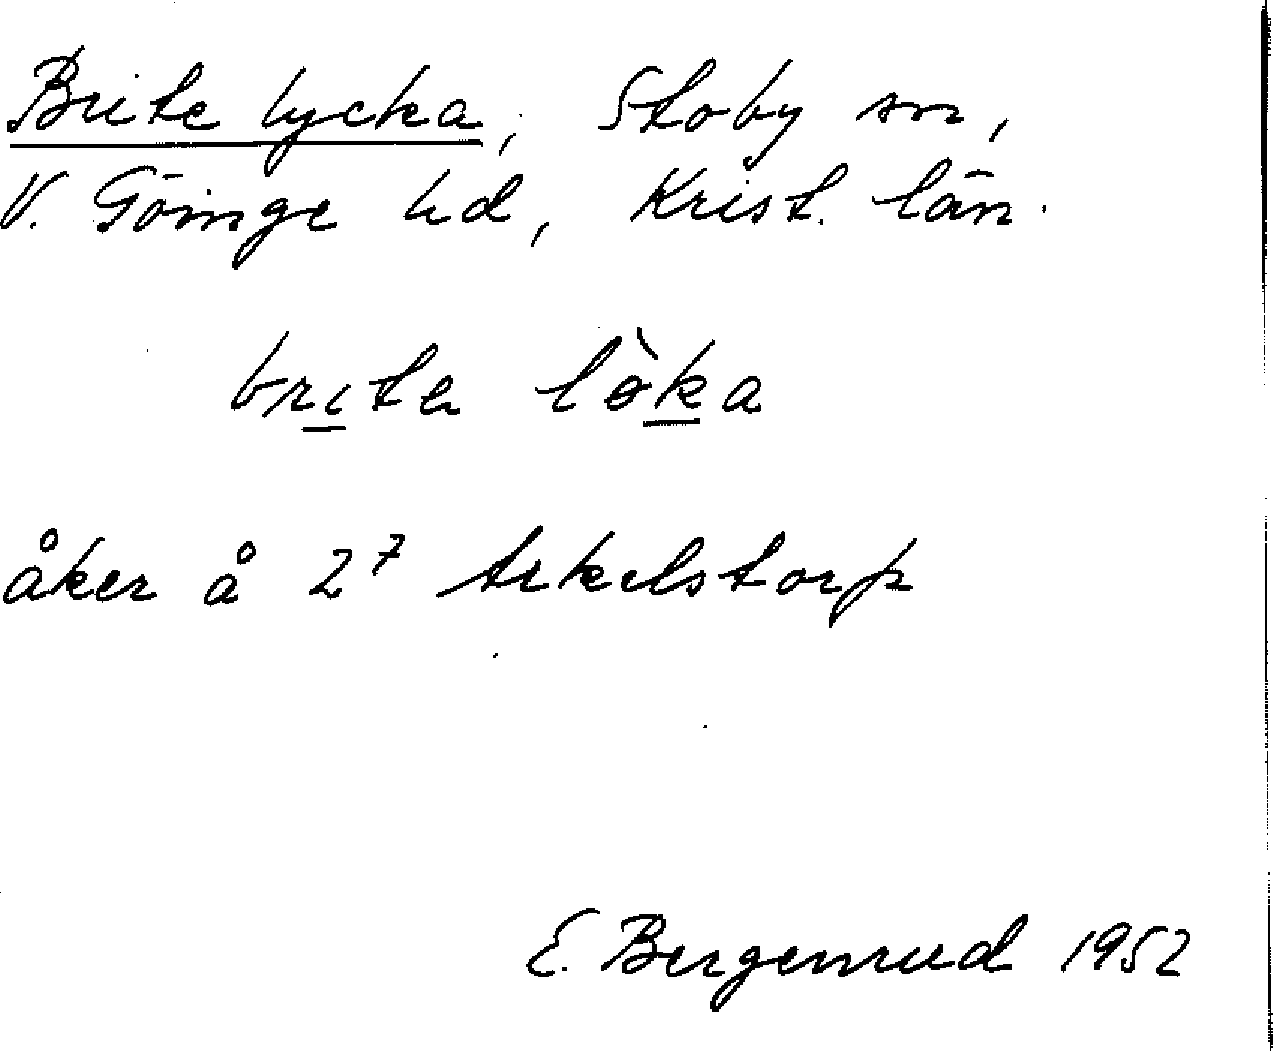 Brite lycka, Stoby sn,
V. Göinge hd, Krist. län.
brıtɐ lò̵ka
åker å 2⁷ Arkelstorp
E. Bergenrud 1952